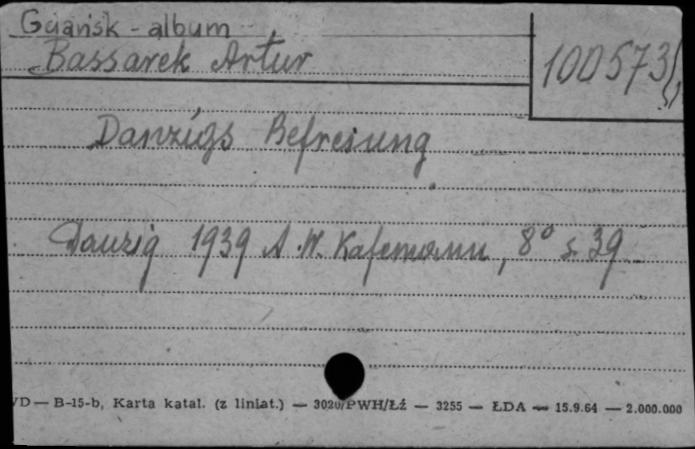 Gdańsk - album
Bassarek Artur
100573
Danzigs Befreiung
Danzig 1939 A.W. Kafemann, 8° s. 39
VD — B-15-b, Karta katal. (z liniat.) — 3020/PWH/Łź — 3255 — ŁDA — 15.9.64 — 2.000.000